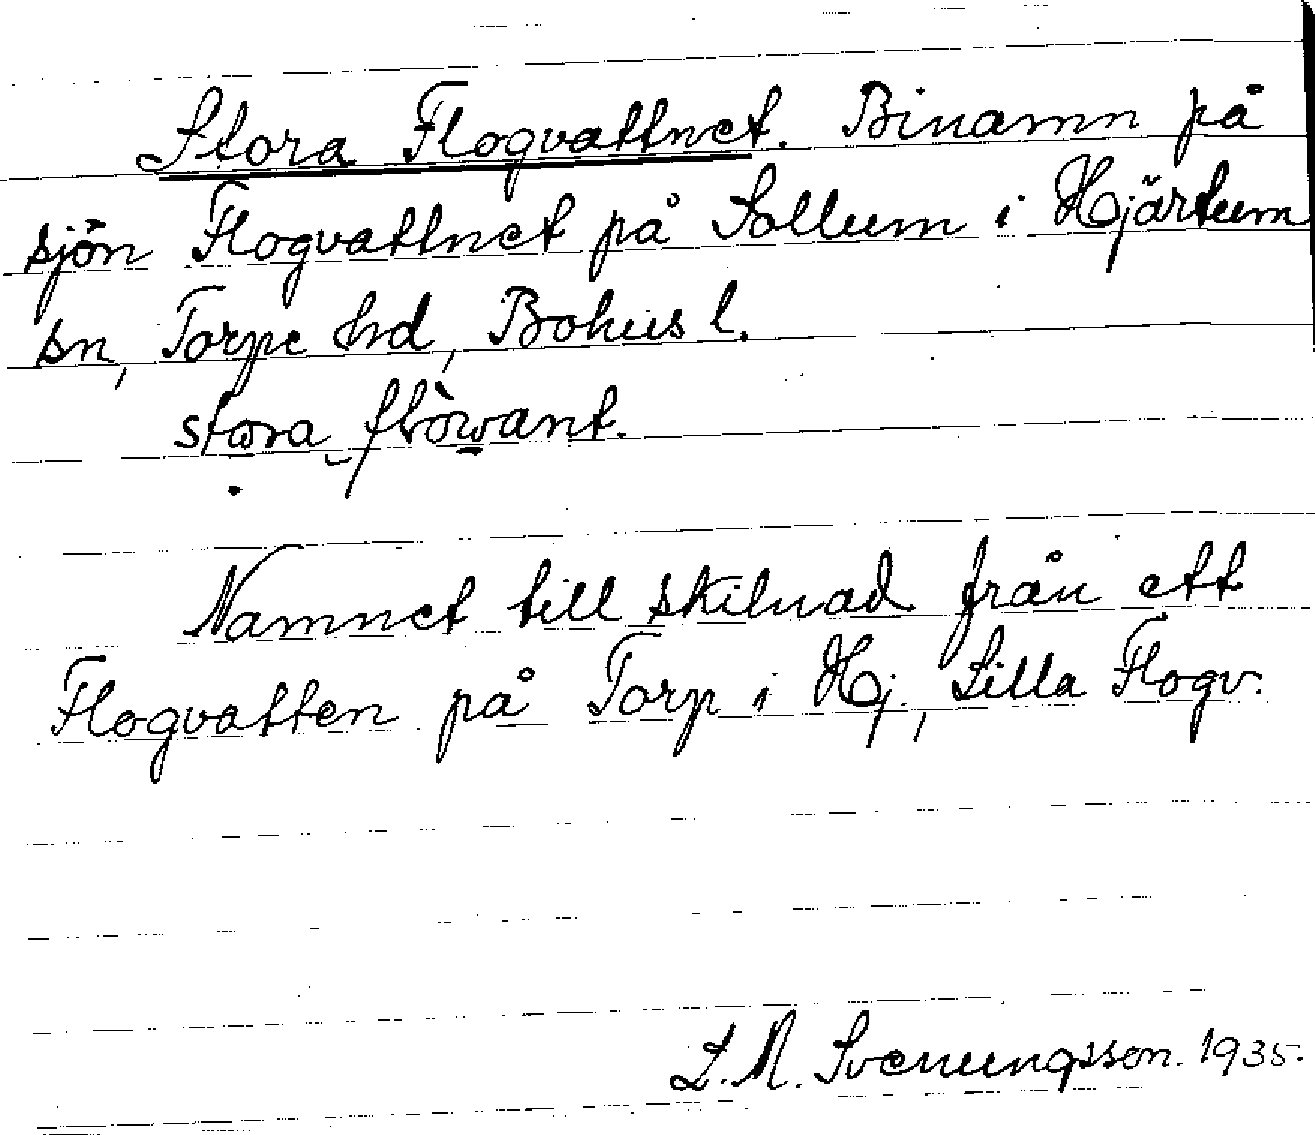 Stora Flogvattnet. Binamn på
sjön Flogvattnet på Sollum i Hjärtum
sn, Torpe hd, Bohus l.
stora flòwant.
Namnet till skilnad från ett
Flogvatten på Torp i Hj., Lilla Flogv.
L. M. Svenungsson. 1935.